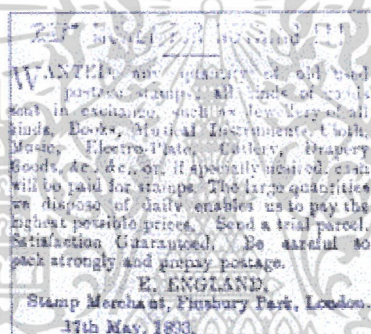 WANTED any quantity of old used
postage stamps, all kinds of goods
sent in exchange, such as Jewellery of all
kinds, Books, Musical Instruments, Cloth,
Music, Electro-Plate, Cutlery, Drapery
Goods, &c., &c., or, if specially desired, cash
will be paid for stamps. The large quantities
we dispose of daily enables us to pay the
highest possible prices. Send a trial parcel.
Satisfaction Guaranteed. Be careful to
pack strongly and prepay postage.
E. ENGLAND,
Stamp Merchant, Finsbury Park, London.
17th May, 1893.